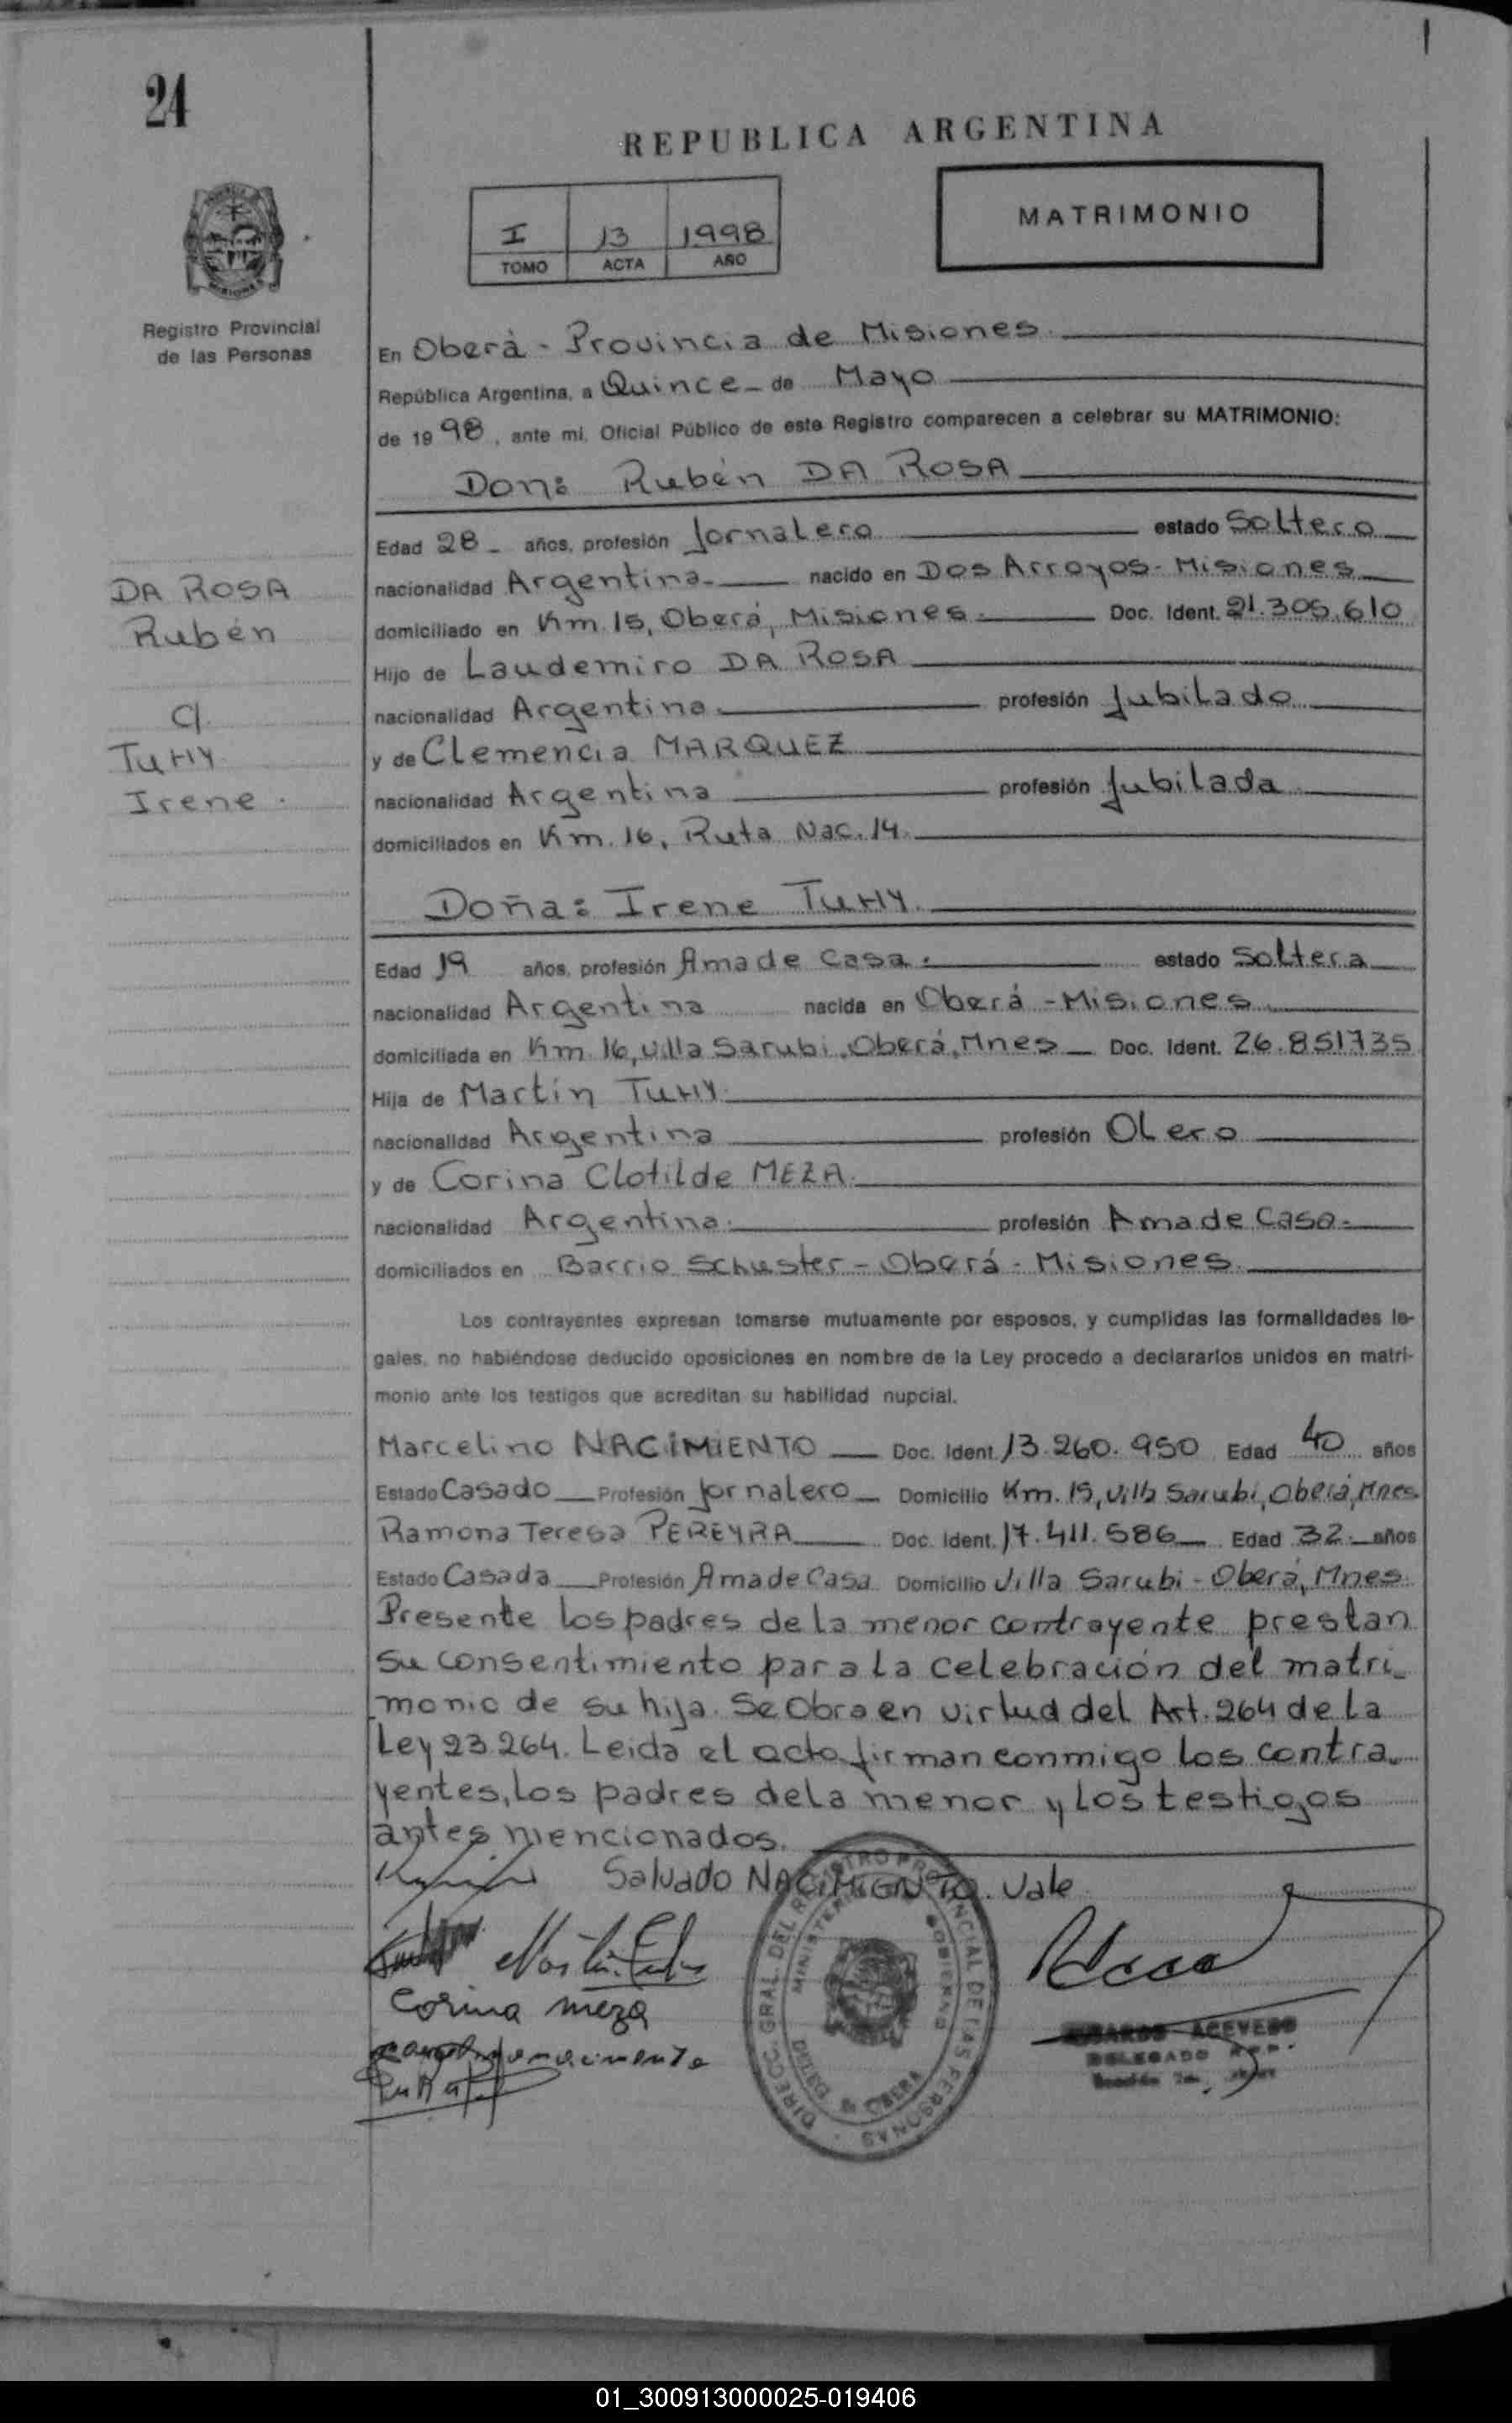 24
REPUBLICA ARGENTINA
MATRIMONIO
I 13 1998
TOMO ACTA AÑO
MISIONES
Registro Provincial
de las Personas
En Oberá - Provincia de Misiones.
República Argentina, a Quince - de Mayo
de 1998, ante mi, Oficial Público de este Registro comparecen a celebrar su MATRIMONIO:
Don: Rubén DA ROSA
Edad 28 - años, profesión Jornalero estado Soltero
nacionalidad Argentina - nacido en Dos Arroyos - Misiones
domiciliado en Km 15, Oberá, Misiones. Doc. Ident. 21.305.610
Hijo de Laudemiro DA ROSA
nacionalidad Argentina. profesión Jubilado
y de Clemencia MARQUEZ
nacionalidad Argentina profesión Jubilada
domiciliados en Km. 16, Ruta Nac. 14.
DA ROSA
Rubén
c/.
TUHY
Irene.
Doña: Irene TUHY.
Edad 19 años, profesión Ama de Casa. estado Soltera
nacionalidad Argentina nacida en Oberá - Misiones
domiciliada en Km 16, Villa Sarubi, Oberá, Mnes Doc. Ident. 26.851735
Hija de Martín TUHY.
nacionalidad Argentina profesión Olero
y de Corina Clotilde MEZA.
nacionalidad Argentina. profesión Ama de Casa.
domiciliados en Barrio Schuster - Oberá - Misiones.
Los contrayentes expresan tomarse mutuamente por esposos, y cumplidas las formalidades le-
gales, no habiéndose deducido oposiciones en nombre de la Ley procedo a declararlos unidos en matri-
monio ante los testigos que acreditan su habilidad nupcial.
Marcelino NACIMIENTO Doc. Ident. 13.260.950 Edad 40 años
Estado Casado Profesión Jornalero Domicilio Km. 15, Villa Sarubi, Oberá, Mnes
Ramona Teresa PEREYRA Doc. Ident. 17.411.586 Edad 32. años
Estado Casada Profesión Ama de Casa Domicilio Villa Sarubi - Oberá, Mnes
Presente los padres de la menor contrayente prestan
su consentimiento para la celebración del matri-
monio de su hija. Se Obra en virtud del Art. 264 de la
Ley 23.264. Leida el acto firman conmigo los contra-
yentes, los padres de la menor y los testigos
antes mencionados.
Salvado NACIMIENTO. Vale
Corina meza
DIRECC. GRAL. DEL REGISTRO PROVINCIAL DE LAS PERSONAS
MINISTERIO GOBIERNO
OBERA
ACEVEDO
DELEGADO R.P.P.
01_300913000025-019406